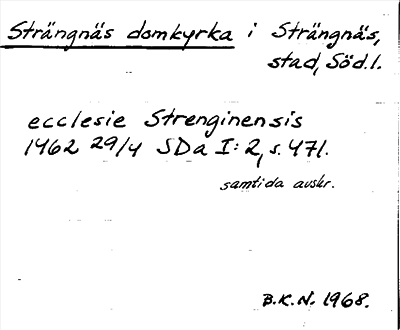 Strängnäs domkyrka i Strängnäs,
stad, Söd.l.
ecclesie Strenginensis
1462 29/4 SDa I:2, s. 471.
samtida avskr.
B.K.N. 1968.